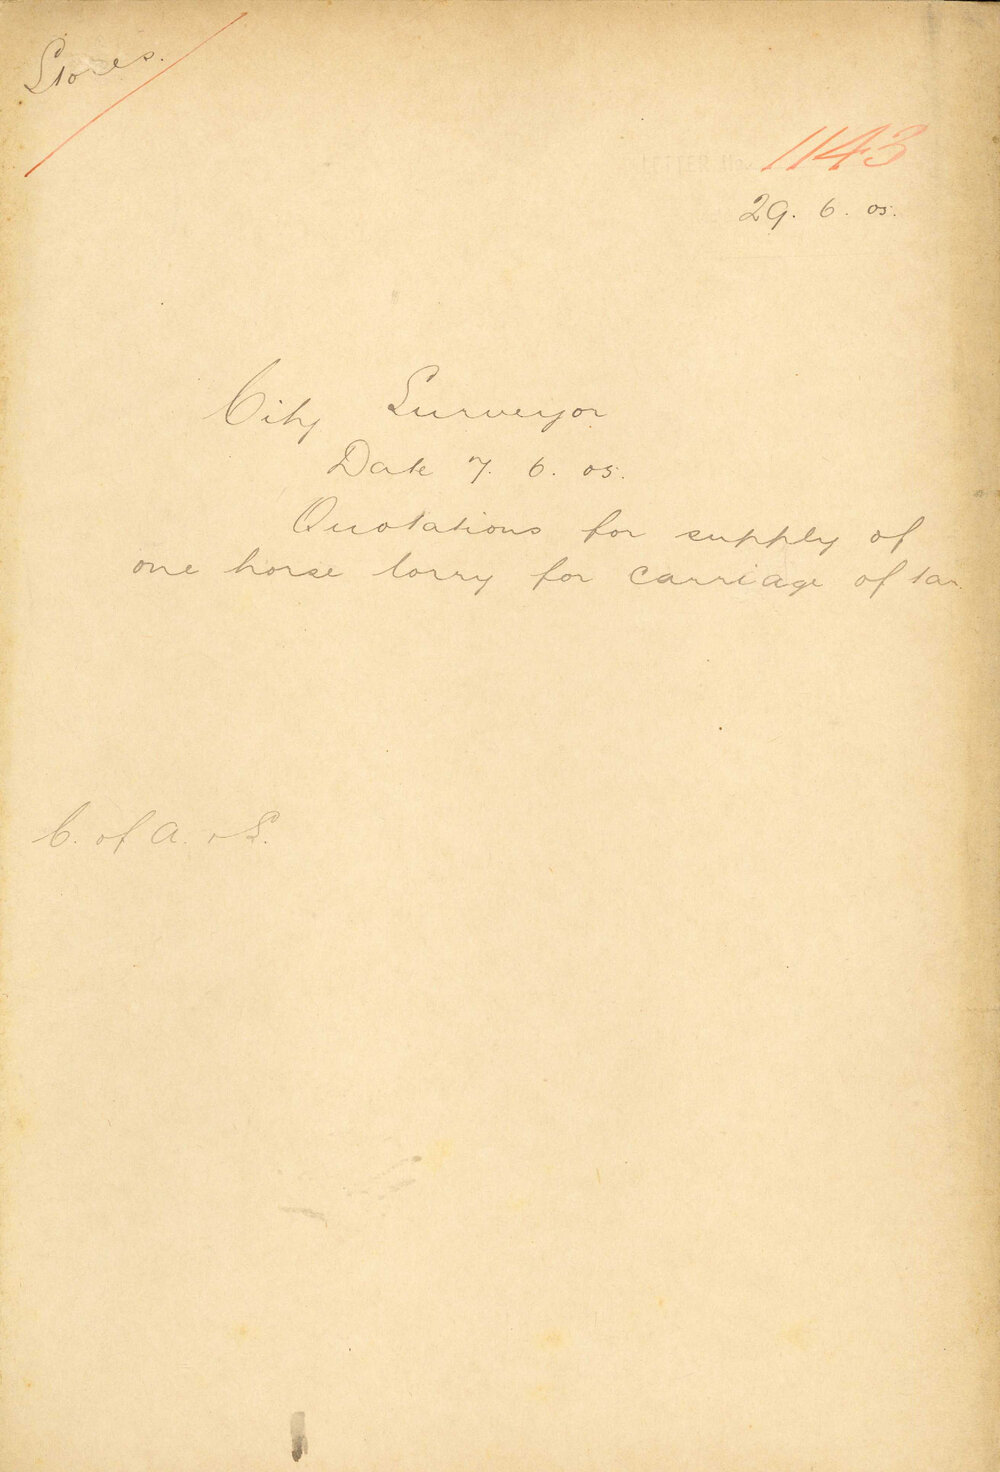 Stores.
1143
29. 6. 05.
City Surveyor
Date 7. 6. 05.
Quotations for supply of
one horse lorry for carriage of tar
C. of A. & S.